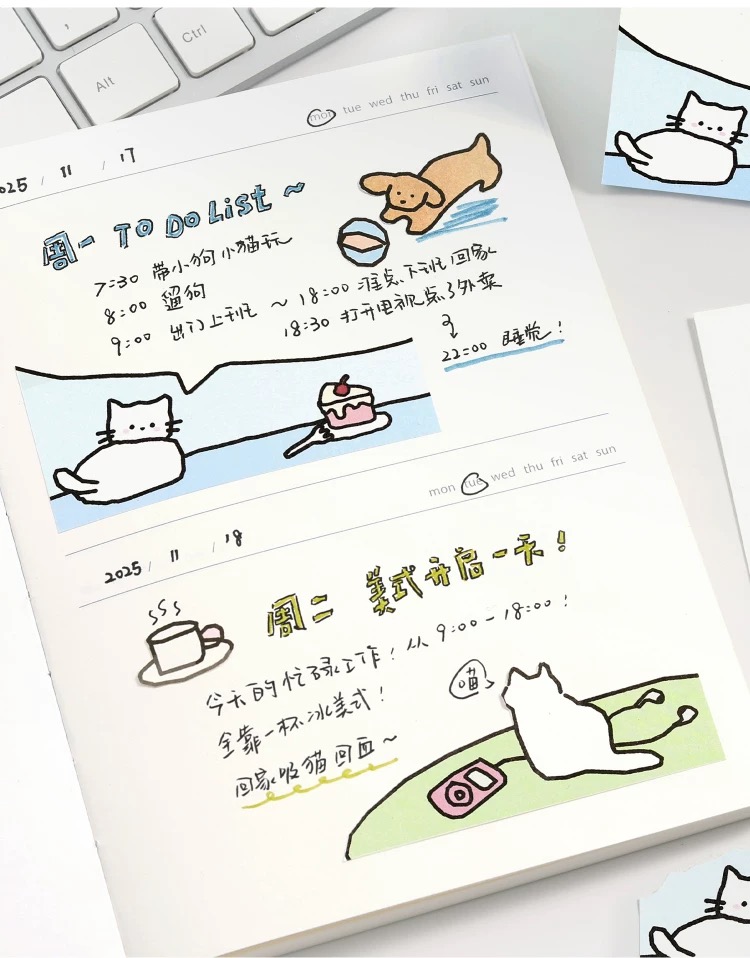 Ctrl
Alt
mon tue wed thu fri sat sun
2025 / 11 / 17
周一 TO DO List ~
7:30 带小狗小猫玩
8:00 遛狗
9:00 出门上班 ~ 18:00 准点下班回家
18:30 打开电视点了外卖
22:00 睡觉!
mon tue wed thu fri sat sun
2025 / 11 / 18
周二 美式开启一天!
今天的忙碌工作!从 9:00-18:00!
全靠一杯冰美式!
回家吸猫回血~
喵